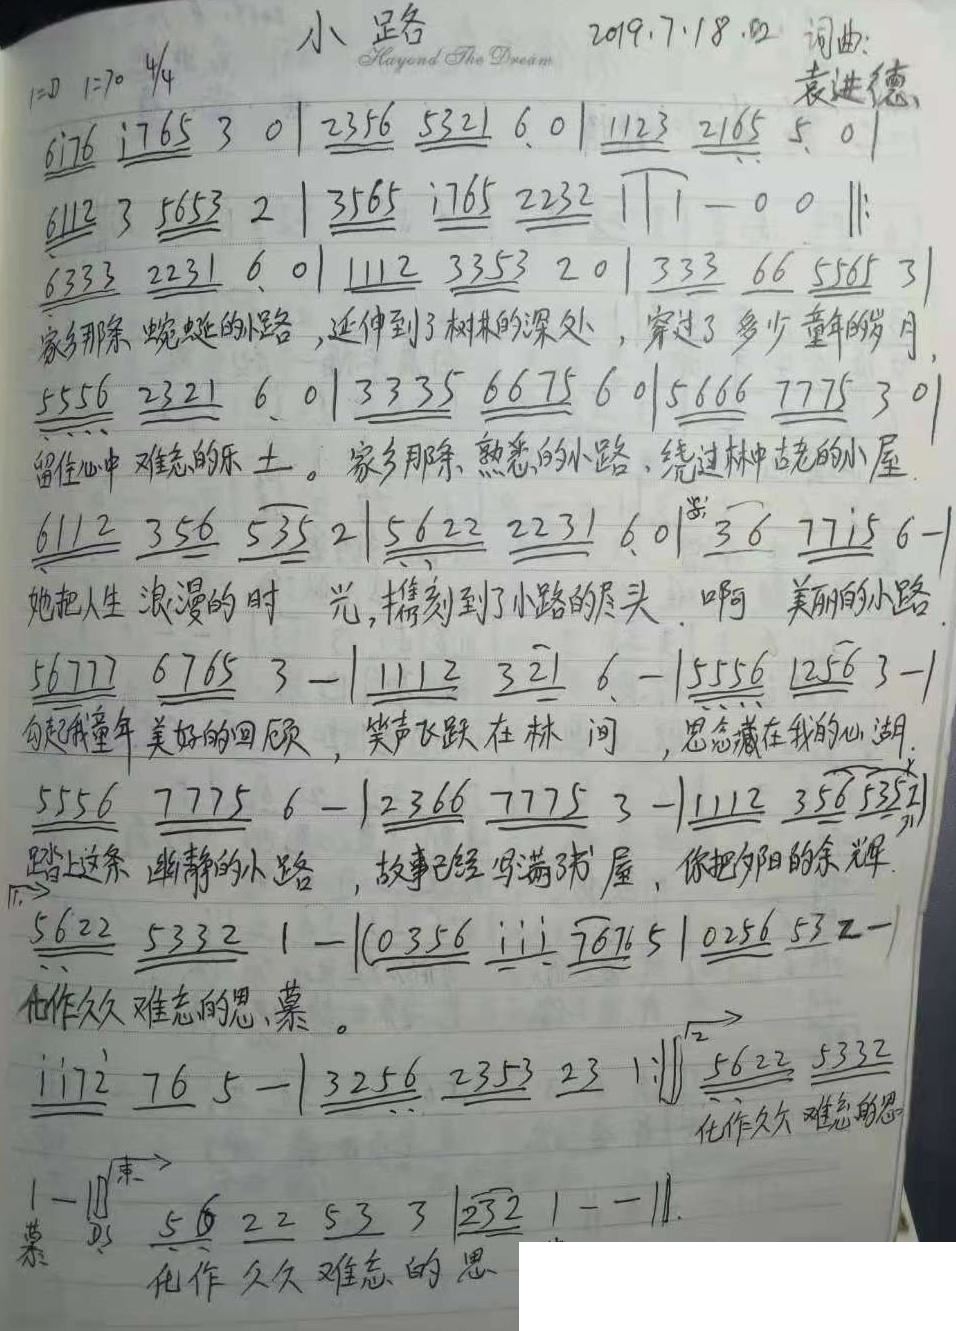 小路 2019.7.18.02 词曲:
Hayond The Dream
1=D 1=70 4/4 袁进德
6i76 i765 3 0 | 2356 5321 6 0 | 1123 2165 5 0 |
6112 3 5653 2 | 3565 i765 2232 1 | 1 — 0 0 ‖:
6333 2231 6 0 | 1112 3353 2 0 | 333 66 5565 3 |
家乡那条 蜿蜒的小路,延伸到了树林的深处,穿过了多少童年的岁月,
5556 2321 6 0 | 3335 6675 6 0 | 5666 7775 3 0 |
留住心中 难忘的乐土。家乡那条 熟悉的小路、绕过林中古老的小屋.
6112 356 535 2 | 5622 2231 6 0 | 36 77i5 6 — |
她把人生 浪漫的时光,携刻到了小路的尽头. 啊 美丽的小路.
56777 6765 3 — | 1112 321 6 — | 5556 1256 3 — |
勾起我童年 美好的回顾,笑声飞跃在林间,思念藏在我的心湖.
5556 7775 6 — | 2366 7775 3 — | 1112 356 5352 |
踏上这条 幽静的小路,故事已经写满了书屋,你把夕阳的余辉.
1.
5622 5332 1 — | (0356 iii 7676 5 | 0256 53 2 — )
化作久久 难忘的思慕。
ii72 76 5 — | 3256 2353 23 1 :‖ 2 5622 5332
化作久久 难忘的思
1 — ‖ 束 56 22 53 3 | 232 1 — — ‖.
慕 DS
化作 久久 难忘 的 思